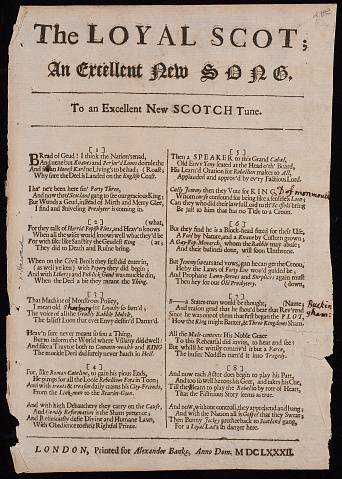 The LOYAL SCOT;
An Excellent New SONG.
To an Excellent New SCOTCH Tune.
[1]
BRead of Gead! I think the Nation's mad,
And nene but Knaves and Perjur'd Loons do rule the
Why sure the Deel is Landed on the English Coast.
I ha' ne'er been here sin' Forty Three,
And now thro' Scotland gang to the our gracious King;
But Wunds a Gead, instead of Mirth and Merry Glee,
I find and Sniveling Presbyter is coming in.
[2]
For they talk of Horrid Popish Plots, and Heav'n knows
When all the wide world would know well what they'd be
For with like like Sanctity the Geudest King
They did to Death and Ruine bring.
When on the Civil Broils they first did enter in,
(as well ye ken) with Popery they did begin;
And with Liberty and Publick Gead was muckle din,
When the Deel a bit they meant the Thing.
[3]
That Machine of Monstrous Policy,
I mean old Shaftsbury his Loyalty so fam'd;
The voice of all the Geudly Rabble Mobile,
The falsest Loon that ever Envy destroy'd Damn'd.
Heav'n sure never meant so foul a Thing,
But to inform the World where Villany did dwell:
And sike a Traytor both to Common-wealth and King,
The muckle Deel did surely never hatch in Hell.
[4]
For, like Roman Cataline, to gain his pious Ends,
He pimps for all the loose Rebellious Fops in Town;
And with treats & treason daily crams his City-Friends,
From the Link-man to the Scarlet-Gown.
And with high Debauchery they carry on the Cause,
And Geudly Reformation is the Sham pretence;
And Religiously defie Divine and Humane Laws,
With Obedience to their Rightful Prince.
[5]
Then a SPEAKER to this Grand Cabal,
Old Envy Tony seated at the Head o'th' Board,
His Learn'd Oration for Rebellion makes to All,
Applauded and approv'd by ev'ry Factious Lord.
Cully Jemmy then they Vote for KING, D of monmouth
Whom ne'er confound for being sike a senseless Loon;
Can they who did their lawful God to th' Scaffold bring
Be just to him that has no Title to a Crown.
[6]
But they find he is a Block-head fitted for their Use,
A Fool by Nature, and a Knave by Custom grown;
A Gay-Fop Monarch, whom the Rabble may abuse;
And their business done, will soon Unthrone.
But Jemmy swears and vows, gan he can get the Croon,
He by the Laws of Forty One wou'd guided be;
And Prophane Lawn-sleeves and Surplices again must
Then hey for our Old Presbytery.
[7]
a States-man would be thought, (Name; Buckin
And reason gead that he shou'd bear that Rev'rend gham:
Since he was one of them that first began the PLOT,
How the King might Banter, & Three Kingdoms Sham.
All the Male-contents His Noble Grace
To this Rehearsal did invite, to hear and see:
But whilst he wittily contriv'd it but a Farce,
The busier Noddles turn'd it into Tragedy.
[8]
And now each Actor does begin to play his Part,
And too is well he con's his Geer, and takes his Cue,
Till they learn to play the Rebel so by rote of Heart,
That the Fictitious Story seems as true.
And now, without controul, they apprehend and hang;
And with the Nation all is Gospel that they Swear;
Then Bonny Jockey prethee back to Scotland gang,
For a Loyal Lad's in danger here.
LONDON, Printed for Alexander Banks, Anno Dom. MDCLXXXII.